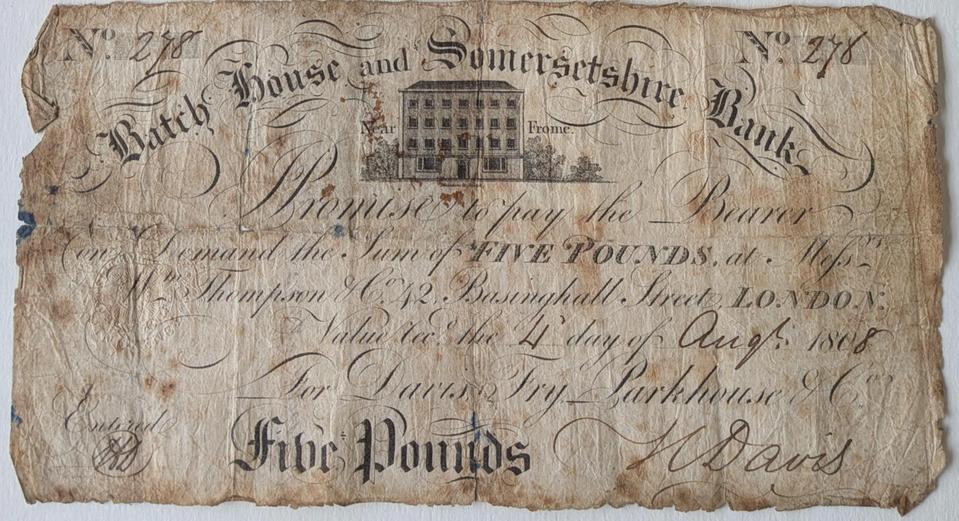 No. 278 No. 278
Batch House and Somersetshire Bank
Near Frome.
I Promise to pay the Bearer
on Demand the Sum of FIVE POUNDS, at Messrs.
Wm. Thompson & Co. 42, Basinghall Street, LONDON.
Value recd. the 4 day of Augt. 1808
For Davis, Fry, Parkhouse & Co.
Entered
Five Pounds
Davis